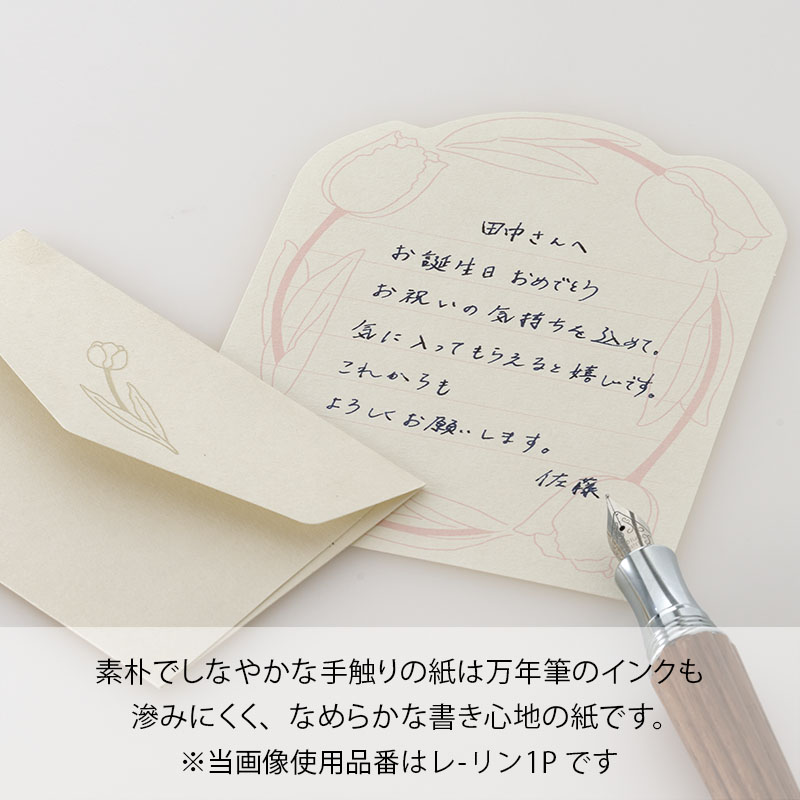 田中さんへ
お誕生日 おめでとう
お祝いの気持ちを込めて。
気に入ってもらえると嬉しいです。
これからも
よろしくお願いします。
佐藤
素朴でしなやかな手触りの紙は万年筆のインクも
滲みにくく、なめらかな書き心地の紙です。
※当画像使用品番はレ-リン1Pです